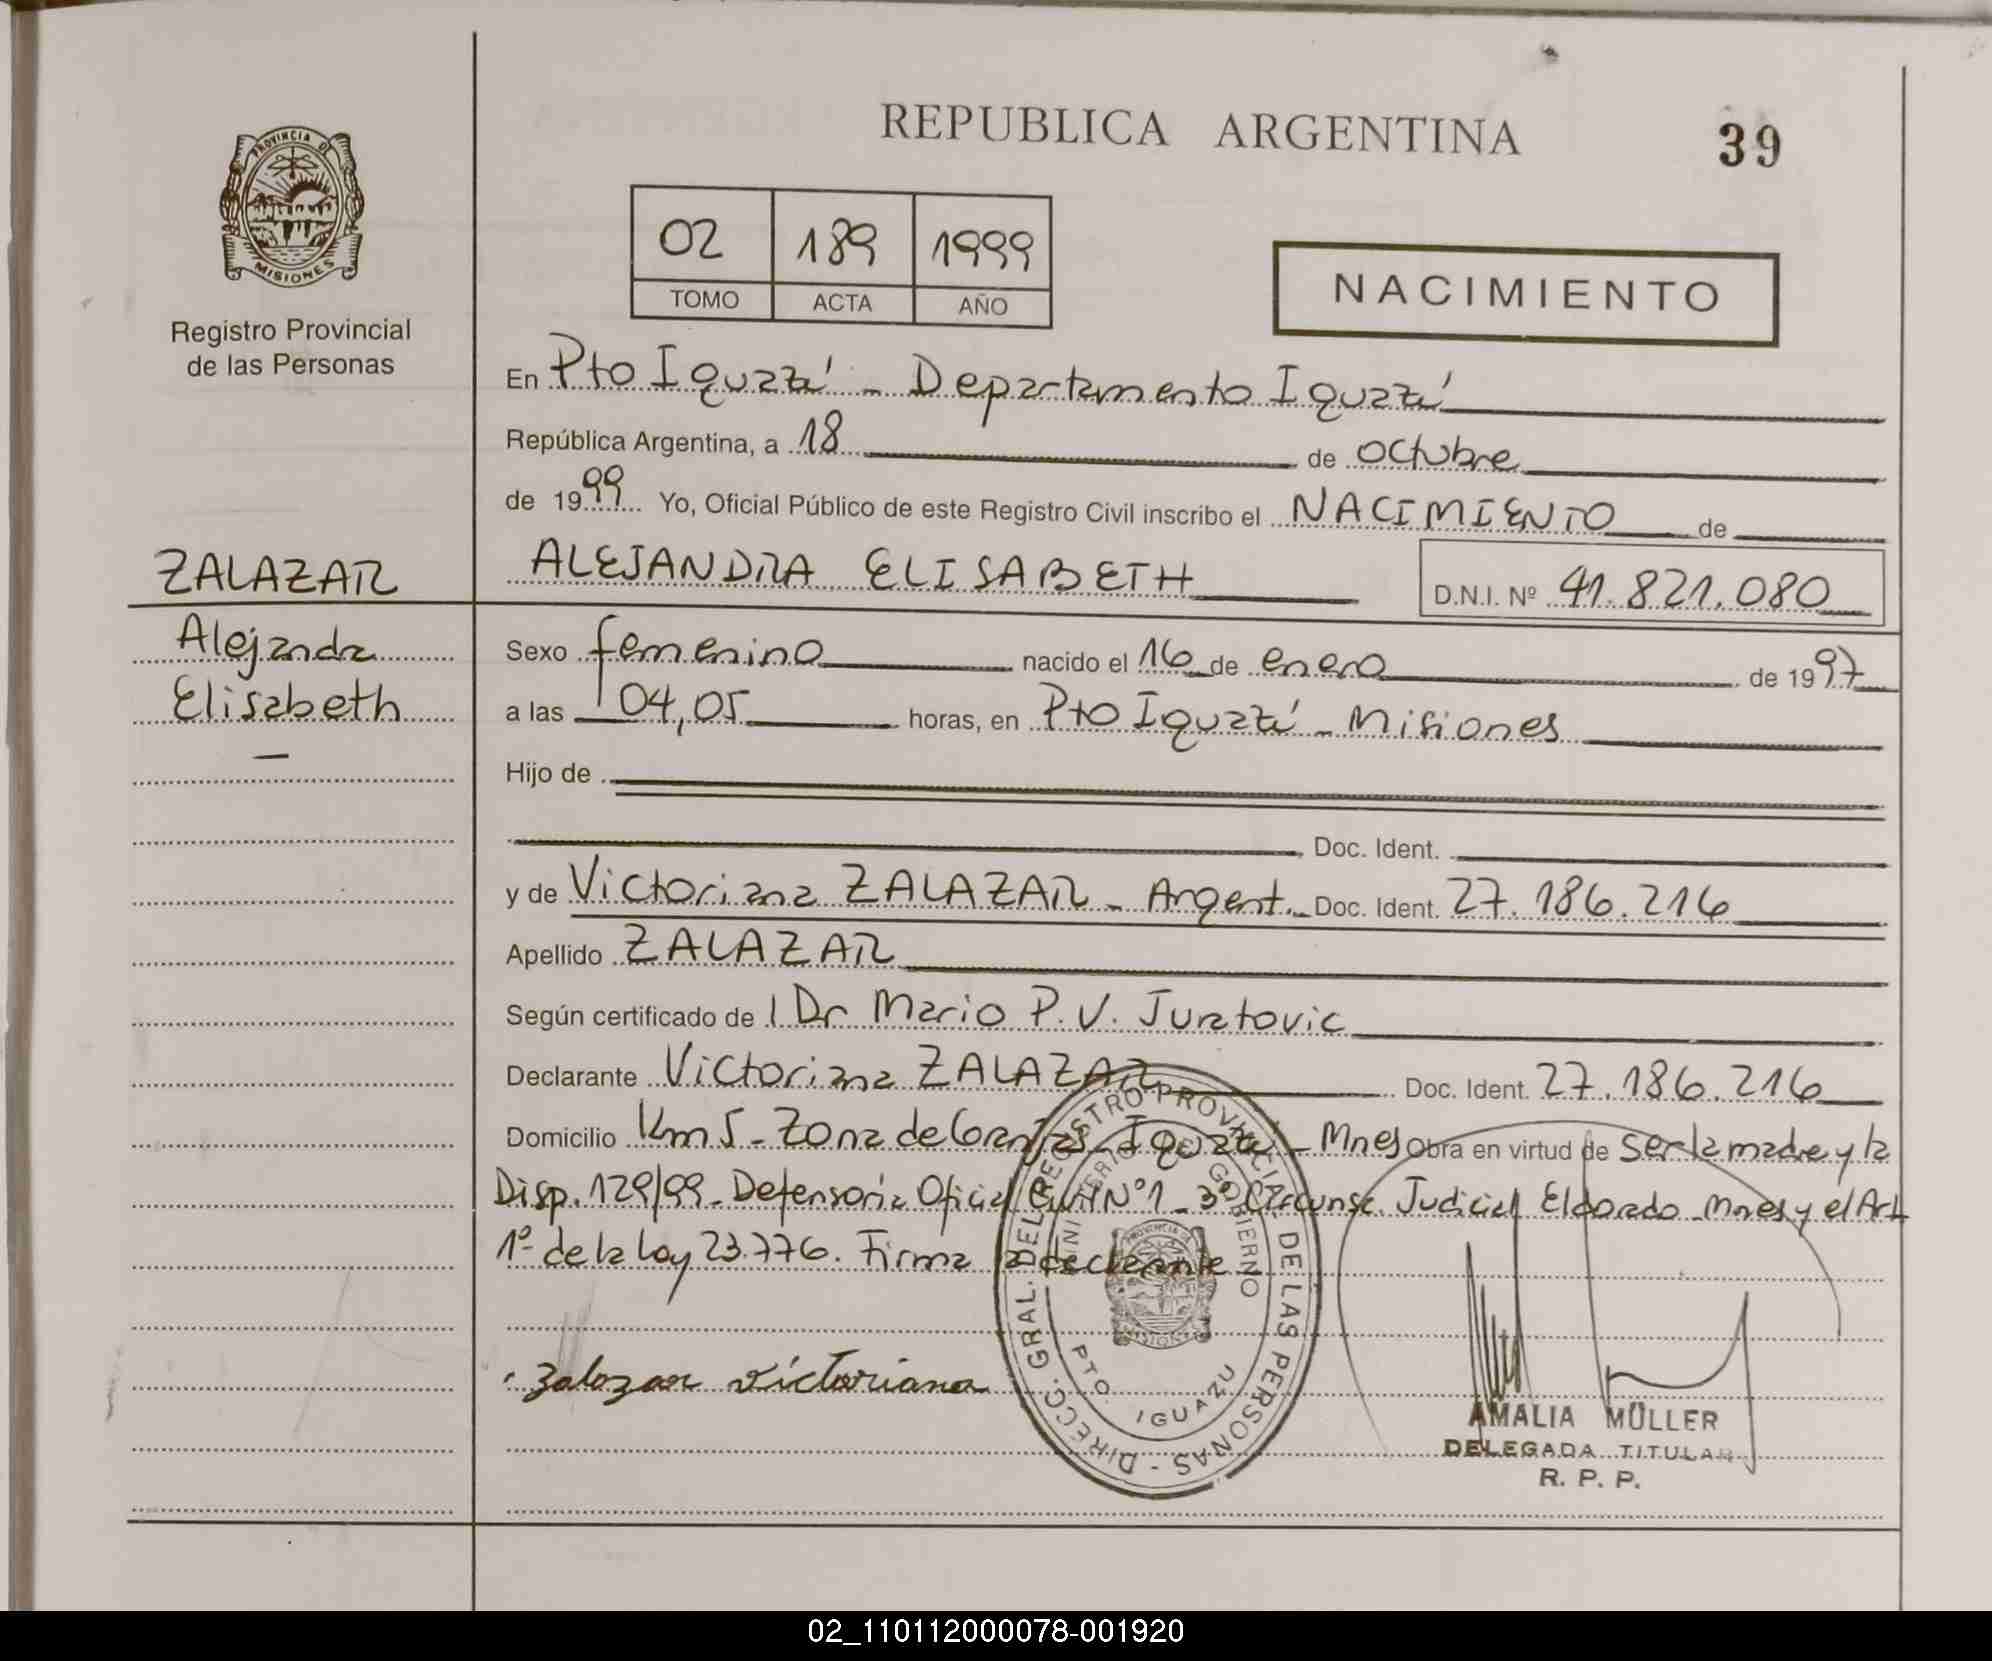 REPUBLICA ARGENTINA
39
PROVINCIA DE
MISIONES
Registro Provincial
de las Personas
02 189 1999
TOMO ACTA AÑO
NACIMIENTO
En Pto Iguazú - Departamento Iguazú
República Argentina, a 18 de octubre
de 1999 Yo, Oficial Público de este Registro Civil inscribo el NACIMIENTO de
ZALAZAR
ALEJANDRA ELISABETH
D.N.I. Nº 41.821.080
Alejandra
Elisabeth
Sexo femenino nacido el 16 de enero de 1997
a las 04,05 horas, en Pto Iguazú - Misiones
Hijo de
Doc. Ident.
y de Victoriana ZALAZAR - Argent. - Doc. Ident. 27.186.216
Apellido ZALAZAR
Según certificado de Dr Mario P. V. Juratovic
Declarante Victoriana ZALAZAR Doc. Ident. 27.186.216
Domicilio Km 5 - Zona de Granjas - Iguazú - Mnes Obra en virtud de ser la madre y la
Disp. 129/99 - Defensoria Oficial Civil Nº 1 - 3º Circunsc. Judicial Eldorado - Mnes y el Art
1º de la Ley 23.776. Firma la declarante -
Zalazar victoriana
DIRECC. GRAL. DEL REGISTRO PROVINCIAL DE LAS PERSONAS -
MINISTERIO DE GOBIERNO
PROVINCIA
MISIONES
PTO. IGUAZU
AMALIA MÜLLER
DELEGADA TITULAR
R. P. P.
02_110112000078-001920